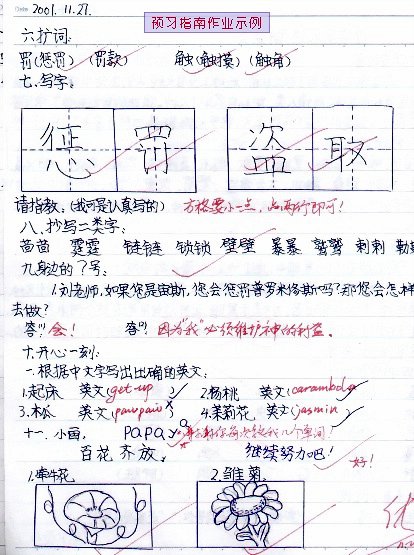 Date 2001.11.27.
预习指南作业示例
六扩词:
罚(惩罚)(罚款) 触(触摸)(触角)
七.写字:
惩罚 盗取
请指教:(我可是认真写的) 方格要小一点,占两行即可!
八.抄写二类字:
苗苗 霆霆 链链 锁锁 壁壁 暴暴 鹫鹫 刺刺
九身边的?号:
1.刘老师,如果您是宙斯,您会惩罚普罗米修斯吗?那您会怎样
去做?
答:会! 答:因为"我"必须维护神的利益。
十.开心一刻:
一.根据中文字写出正确的英文:
1.起床 英文(get-up) 2.杨桃 英文(carambola)
3.木瓜 英文(pawpaw) 4.茉莉花 英文(jasmin)
papa
百花齐放 继续努力吧! 好!
1.牵牛花 2.雏菊
优